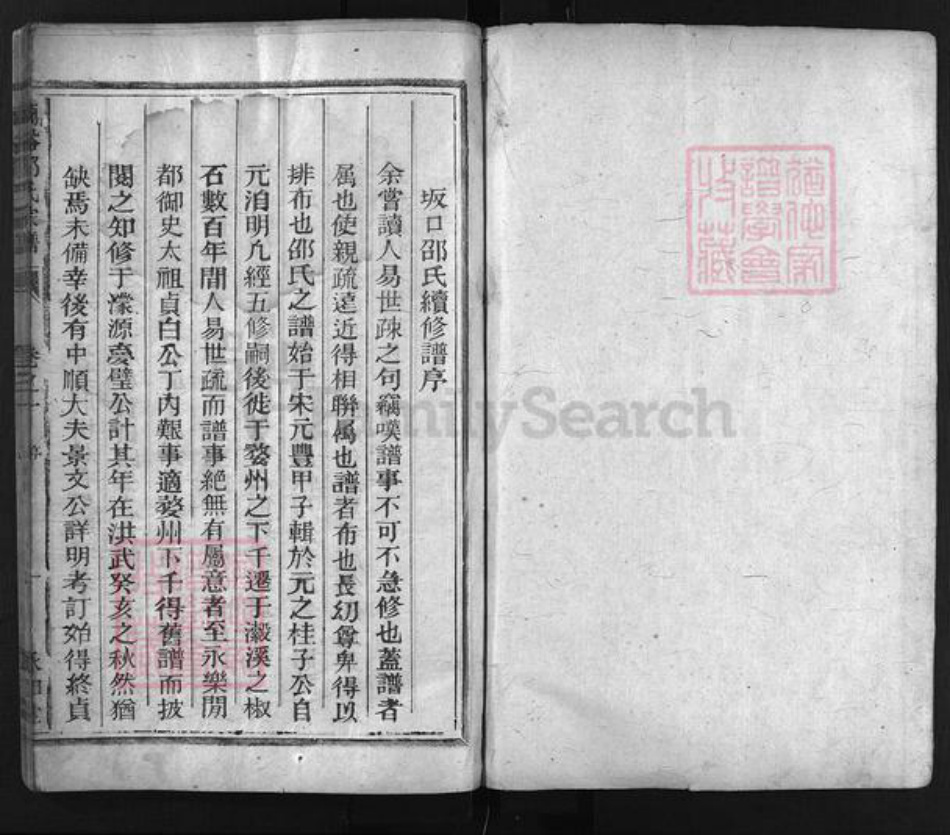 坂口邵氏續修譜序
余嘗讀人易世疎之句竊嘆譜事不可不急修也蓋譜者
属也使親疏遠近得相聯属也譜者布也長㓜尊卑得以
排布也邵氏之譜始于宋元豐甲子輯於元之桂子公自
元洎明凢經五修嗣後徙于婺州之下千遷于瀫溪之椒
石數百年間人易世疏而譜事絕無有屬意者至永樂間
都御史太祖貞白公丁內艱事適婺州下千得舊譜而披
閱之知修于濛源虁璧公計其年在洪武癸亥之秋然猶
缺焉未備幸後有中順大夫景文公詳明考訂始得終貞
邵氏宗譜
卷之一
序
一
猶他家譜學會收藏
FamilySearch